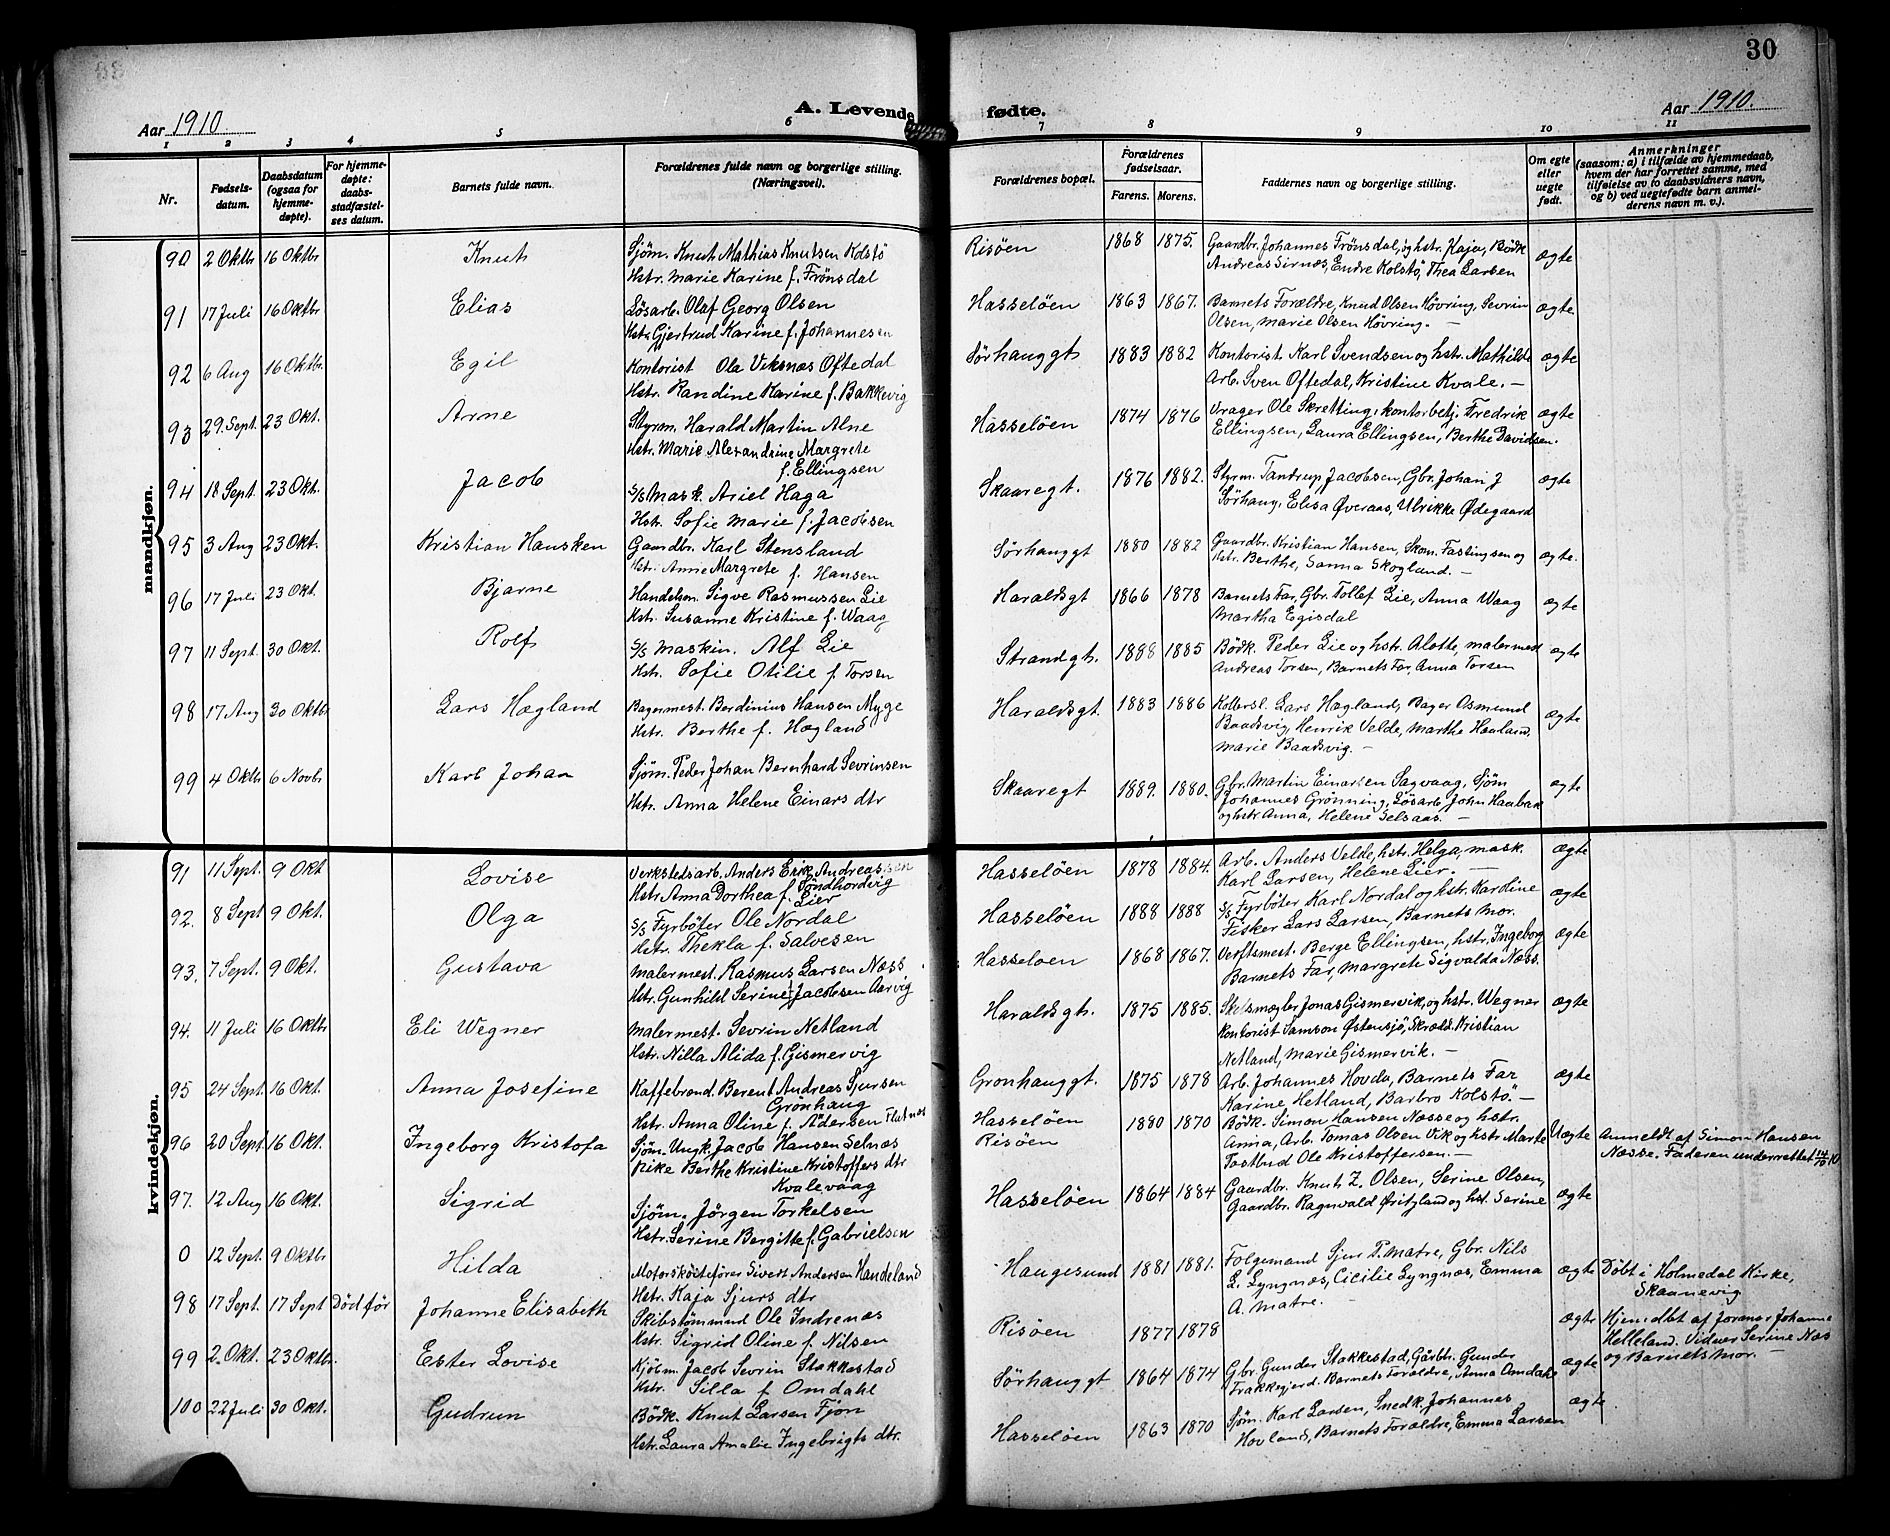 30
Aar 1910
A. Levende fødte.
Aar 1910.
1 2 3 4 5 6 7 8 9 10 11
Nr.
Fødsels-
datum.
Daabsdatum
(ogsaa for
hjemme-
døpte).
For hjemme-
døpte:
daabs-
stadfæstel-
ses datum.
Barnets fulde navn.
Forældrenes fulde navn og borgerlige stilling.
(Næringsvei).
Forældrenes bopæl.
Forældrenes
fødselsaar.
Farens. Morens.
Faddernes navn og borgerlige stilling.
Om egte
eller
uegte
født.
Anmerkninger
(saasom: a) i tilfælde av hjemmedaab,
hvem der har forrettet samme, med
tilføielse av to daabsvidners navn,
og b) ved uegtefødte barn anmel-
derens navn m. v.).
mandkjøn.
90 2 Oktbr 16 Oktbr Knut Sjøm. Knut Mathias Knutsen Kolstö Risöen 1868 1875. Gaardbr. Johannes Frönsdal, og hstr. Kaja, Bödk
Hstr. Marie Karine f. Frönsdal Andreas Sirnæs, Endre Kolstö, Thea Larsen ægte
91 17 Juli 16 Oktbr Elias Løsarb. Olaf Georg Olsen Hasselöen 1863 1867. Barnets Forældre, Knud Olsen Hövring, Sevrin ægte
Hstr. Gjertrud Karine f. Johannesen Olsen, Marie Olsen Hövring. —
92 6 Aug 16 Oktbr. Egil Kontorist Ola Viksnæs Oftedal Sörhauggt 1883 1882 Kontorist. Karl Svendsen og hstr. Mathilde ægte
Hstr. Randine Karine f. Bakkevig Arb. Sven Oftedal, Kristine Kvale. —
93 29. Sept. 23 Okt. Arne Styrm. Harald Martin Alne Hasselöen 1874 1876 Vrager Ole Skretting, kontorbetj. Fredrik ægte
Hstr. Marie Alexandrine Margrete Ellingsen, Laura Ellingsen, Berthe Davidsen.
f. Ellingsen
94 18 Sept. 23 Okt. Jacob S/S Mask. Ariel Haga Skaaregt. 1876 1882. Styrm. Tandrup Jacobsen, Gbr. Johan J ægte
Hstr. Sofie Marie f. Jacobsen Sörhaug, Elisa Øveraas, Ulrikke Ødegaard
95 3 Aug 23 Okt. Kristian Hansken Gaardbr. Karl Stensland Sörhauggt 1880 1882 Gaardbr. Kristian Hansen, Skom. Fastingsen og ægte.
Hstr. Anne Margrete f. Hansen Hstr. Berthe, Sanna Skogland. —
96 17 Juli 23 Okt. Bjarne Handelsm. Sigve Rasmussen Lie Haraldsgt 1866 1878 Barnets Far, Gbr. Tollef Lie, Anna Waag ægte
Hstr. Susanne Kristine f. Waag Martha Egisdal
97 11 Sept. 30 Okt. Rolf S/S Maskin. Alf Lie Strandgt. 1888 1885 Bödk. Peder Lie og hstr. Alette, malermest ægte
Hstr. Sofie Otilie f. Torsen Andreas Torsen, Barnets Far, Anna Torsen
98 17 Aug 30 Oktbr Lars Hægland Bagermest. Berdinius Hansen Myge Haraldsgt 1883 1886 Lars Hægland, Bager Osmund ægte
Hstr. Berthe f. Hægland Baadsvig, Henrik Velde, Marthe Hauland,
Marie Baadsvig. —
99 4 Oktbr 6 Novbr Karl Johan Sjöm. Peder Johan Bernhard Sevrinsen Skaaregt 1889. 1880. Gbr. Martin Einarsen Sagvaag, Sjöm ægte
Hstr. Anna Helene Einars dtr Johannes Grönning, Løsarb. John Haabak
og hstr Anna, Helene Selsaas. —
kvindekjøn.
91 11 Sept. 9 Okt Lovise Verkstedsarb. Anders Erik Andreassen Hasselöen 1878 1884. Arb. Anders Velde, hstr. Helga, mask. ægte
Söndhordvig
Hstr. Anna Dorthea f. Lier Karl Larsen, Helene Lier. —
92. 8 Sept 9 Okt. Olga S/S Fyrböter Ole Nordal Hasselöen 1888 1888 S/S Fyrböter Karl Nordal og hstr. Karoline ægte
Hstr. Thekla f. Salvesen Fisker Lars Larsen, Barnets Mor.
93. 7 Sept. 9 Okt. Gustava Malermest. Rasmus Larsen Næss Hasseloen 1868 1867. Verftsmest. Berge Ellingsen, hstr. Ingeborg ægte
Hstr. Gunhild Serine f. Jacobsen Aarvig Barnets Far, Margrete Sigvalda Næss.
94. 11 Juli 16 Oktbr Eli Wegner Malermest. Sevrin Netland Haraldsgt. 1875 1885. Skibsmægler Jonas Gismervik, og hstr. Wegner ægte
Hstr. Nilla Alida f. Gismervig Kontorist Samson Østensjö, Skræd. Kristian
Netland, Marie Gismervik. —
95 24 Sept. 16 Okt. Anna Josefine Kaffebrænd. Berent Andreas Sjursen Gronhauggt. 1875 1878 Arb. Johannes Hovda, Barnets Far ægte
Grönhaug Karine Hetland, Barbro Kolstö. —
Hstr. Anna Oline f. Flatnæs
96 20 Sept. 16 Okt. Ingeborg Kristofa Sjöm. Ungk. Jacob Hansen Selnæs Hasselöen 1880 1870 Bödk. Simon Hansen Næsse og hstr. Uægte Anmeldt af Simon Hansen
Pike Berthe Kristine Kristoffers dtr Risöen Anna, Arb. Tomas Olsen Vik og hstr Marte Næsse. Faderen underrettet 14/10 10
Kvalevaag Postbud Ole Kristoffersen. —
97. 12 Aug 16 Okt. Sigrid Sjöm. Jörgen Torkelsen Hasselöen 1864 1884 Gaardbr. Knut Z. Olsen, Serine Olsen, ægte
Hstr. Serine Bergitte f. Gabrielsen Gaardbr. Ragnvald og hst. Serine
0 12 Sept. 9 Oktbr Hilda Motorskøitefører Sivert Andersen Handeland Haugesund 1881 1881. Folgemand Sjur P. Matre, Gbr. Nils ægte Döbt i Holmedal Kirke,
Hstr. Kaja Sjurs dtr L. Lyngnæs, Cicilie Lyngnæs, Emma Skaanevig
A. Matre. —
98 17 Sept. 17 Sept Död før Johanne Elisabeth Skibstömmmd Ole Indrenæs Risöen 1877 1878 ægte Hjemdöbt af Jormor Johanne
Hstr. Sigrid Oline f. Nilsen Helleland. Vidner Serine Næs
og Barnets Mor. —
99 2. Okt. 23 Oktbr. Ester Lovise Kjöbm. Jacob Sevrin Stakkestad Sörhauggt 1864 1874 Gbr. Gunder Stakkestad, Gårbr. Gunder ægte
Hstr. Silla f. Omdahl Frakkegjerd. Barnets Forældre, Anna Omdahl
100 22 Juli 30 Okt. Gudrun Bödk. Knut Larsen Fjon Hasselöen 1863 1870 Sjöm. Karl Larsen, Snedk. Johannes ægte
Hstr. Laura Amalie Ingebrigts dtr. Hovland, Barnets Forældre, Emma Larsen